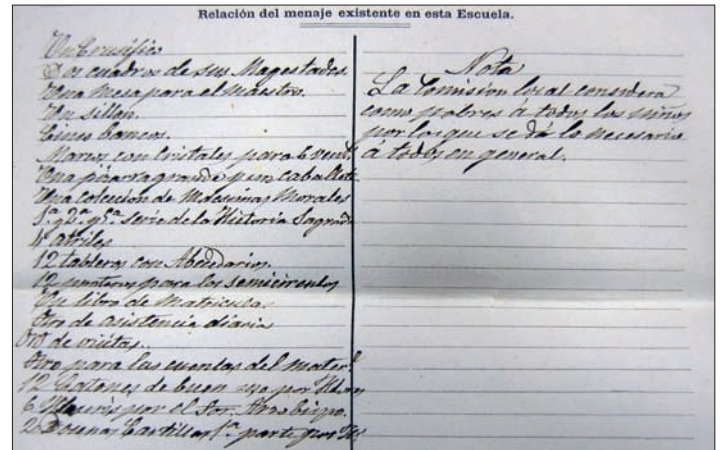 Relación del menaje existente en esta Escuela.
Un Crusifico
Dos cuadros de sus Magestades.
Una mesa para el maestro.
Un sillon.
Cinco bancos.
Marcos con Cristales para 6 vent.
Una pizarra grande y un caballete
Una coleccion de Macsimas Morales
1ª y 2ª y 3ª serie de la Historia Sagrada
4 atriles
12 tableros con Abecedarios.
12 punteros para los semicirculos
Un libro de Matricula.
Otro de asistencia diaria
Otro de visitas.
Otro para las cuentas del mater.l
12 Catones de buen uso por
6 por el Sor. Arzobispo.
2 Docenas Cartillas 1ª parte por
Nota
La Comision local considera
como pobres á todos los niños
por lo que se dá lo necesario
á todos en general.